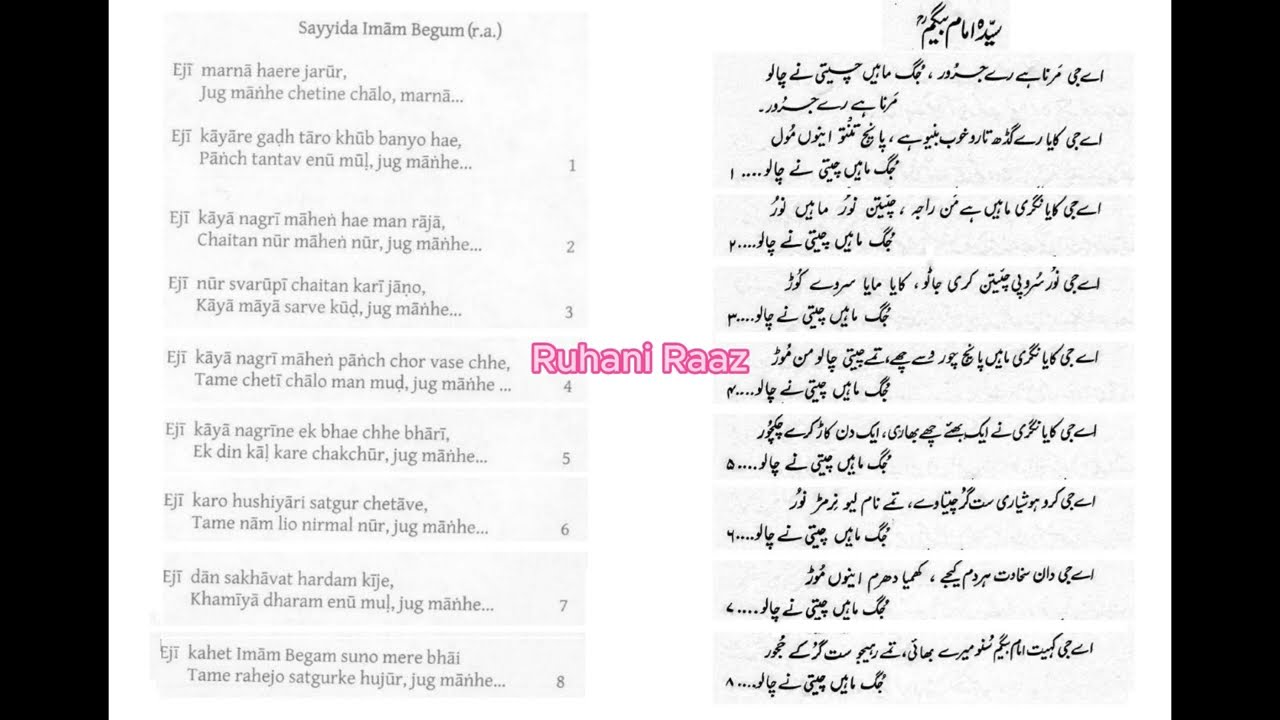 Sayyida Imām Begum (r.a.)
Ejī marnā haere jarūr,
Jug māṅhe chetine chālo, marnā...
Ejī kāyāre gaḍh tāro khūb banyo hae,
Pāṅch tantav enū mūḷ, jug māṅhe... 1
Ejī kāyā nagrī māheṅ hae man rājā,
Chaitan nūr māheṅ nūr, jug māṅhe... 2
Ejī nūr svarūpī chaitan karī jāṇo,
Kāyā māyā sarve kūḍ, jug māṅhe... 3
Ejī kāyā nagrī māheṅ pāṅch chor vase chhe,
Tame chetī chālo man muḍ, jug māṅhe ... 4
Ejī kāyā nagrīne ek bhae chhe bhārī,
Ek din kāḷ kare chakchūr, jug māṅhe... 5
Ejī karo hushiyāri satgur chetāve,
Tame nām lio nirmal nūr, jug māṅhe... 6
Ejī dān sakhāvat hardam kīje,
Khamīyā dharam enū muḷ, jug māṅhe... 7
Ejī kahet Imām Begam suno mere bhāi
Tame rahejo satgurke hujūr, jug māṅhe... 8
سیّدہ امام بیگمؒ
اے جی مَرنا ہے رے جرُور ، جُگ ماہیں چیتی نے چالو
مَرنا ہے رے جرُور۔
اے جی کایا رے گڈھ تارو خوب بنیو ہے ، پانچ تنتو اینوں مُول
جُگ ماہیں چیتی نے چالو.... ۱
اے جی کایا نگری ماہیں ہے مَن راجہ ، چَیتن نورُ ماہیں نورُ
جُگ ماہیں چیتی نے چالو....۲
اے جی نورُ سُروپی چَیتن کری جاٹو ، کایا مایا سروے کوُڑ
جُگ ماہیں چیتی نے چالو....۳
اے جی کایا نگری ماہیں پانچ چور وَسے چھے، تمے چیتی چالو من موُڑ
جُگ ماہیں چیتی نے چالو....۴
اے جی کایا نگری نے ایک بھئے چھے بھاری، ایک دن کاڑ کرے چکچوُر
جُگ ماہیں چیتی نے چالو....۵
اے جی کرو ہوشیاری ست گرُ چیتاوے، تمے نام لیو نِرمڑ نورُ
جُگ ماہیں چیتی نے چالو....۶
اے جی دان سخاوت ہردم کیجے ، کھمیا دھرم اینوں موُڑ
جُگ ماہیں چیتی نے چالو....۷
اے جی کہیت امام بیگم سُنو میرے بھائی، تمے رہیجو ست گرُ کے حُجور
جُگ ماہیں چیتی نے چالو....۸
Ruhani Raaz